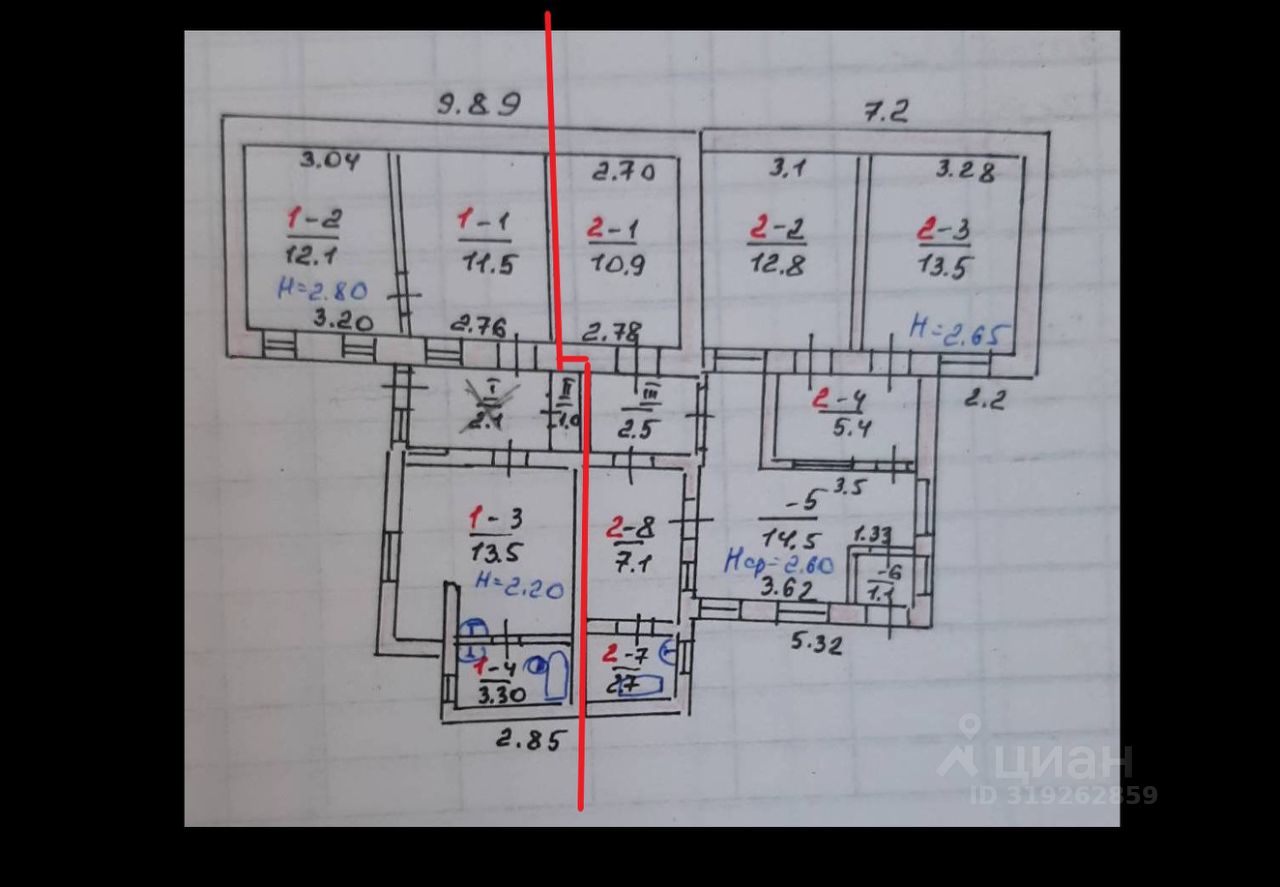 9.89
7.2
3.04
2.70
3.1
3.28
1-2
12.1
1-1
11.5
2-1
10.9
2-2
12.8
2-3
13.5
H=2.80
3.20
2.76
2.78
H=2.65
I
2.1
II
1.0
III
2.5
2-4
5.4
2.2
3.5
1-3
13.5
H=2.20
2-8
7.1
-5
14.5
1.33
Hср=2.60
3.62
-6
1.1
5.32
1-4
3.30
2-7
27
2.85
циан
ID 319262859